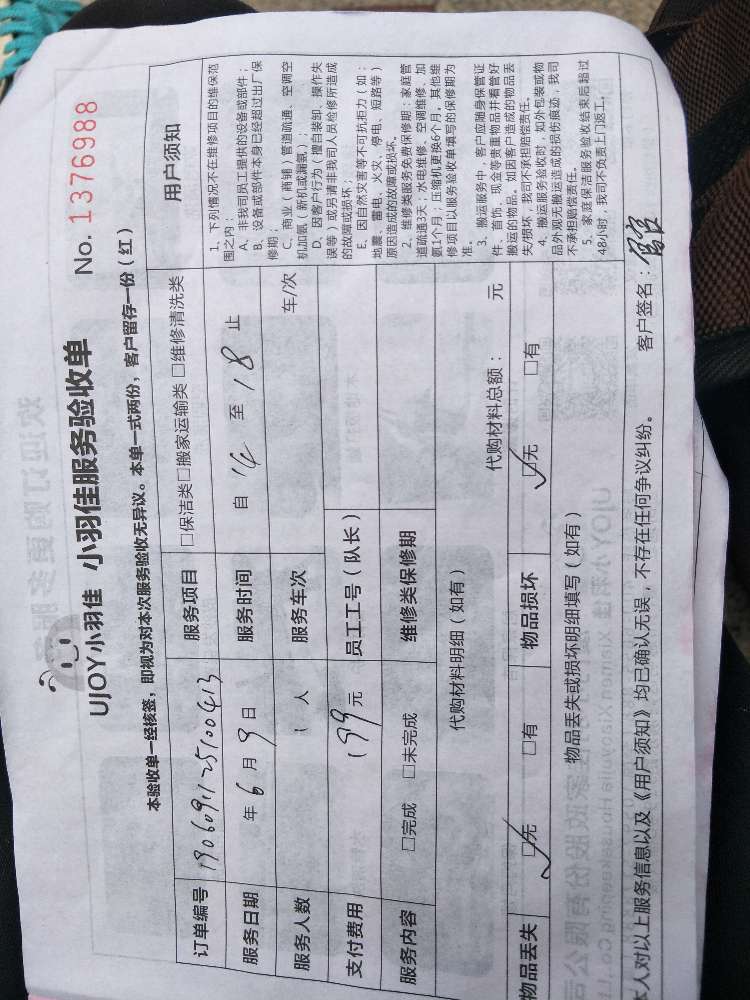 UJOY小羽佳 小羽佳服务验收单
No. 1376988
本验收单一经核签，即视为对本次服务验收无异议。本单一式两份，客户留存一份（红）
订单编号 1906091125100413 服务项目 □保洁类□搬家运输类□维修清洗类
服务日期 年6月9日 服务时间 自 14 至 18 止
服务人数 1 人 服务车次 车/次
支付费用 199 元 员工工号（队长）
服务内容 □完成 □未完成 维修类保修期
代购材料明细（如有） 代购材料总额： 元
物品丢失 ☑无 □有 物品损坏 ☑无 □有
物品丢失或损坏明细填写（如有）
本人对以上服务信息以及《用户须知》均已确认无误，不存在任何争议纠纷。 客户签名：
用户须知
1、下列情况不在维修项目的维保范
围之内：
A、非我司员工提供的设备或部件；
B、设备或部件本身已经超过出厂保
修期；
C、商业（商铺）管道疏通、空调空
机加氨（新机或漏氨）；
D、因客户行为（擅自装卸、操作失
误等）或另请非我司人员检修所造成
的故障或损坏；
E、因自然灾害等不可抗拒力（如：
地震、雷电、火灾、停电、短路等）
原因造成的故障或损坏。
2、维修类服务免费保修期：家庭管
道疏通3天；水电维修、空调维修、加
氨1个月；压缩机更换6个月，其他维
修项目以服务验收单填写的保修期为
准。
3、搬运服务中，客户应随身保管证
件、首饰、现金等贵重物品并看管好
搬运的物品。如因客户造成的物品丢
失/损坏，我司不承担赔偿责任。
4、搬运服务验收时，如外包装或物
品外观无搬运造成的损伤痕迹，我司
不承担赔偿责任。
5、家庭保洁服务验收结束后超过
48小时，我司不负责上门返工。